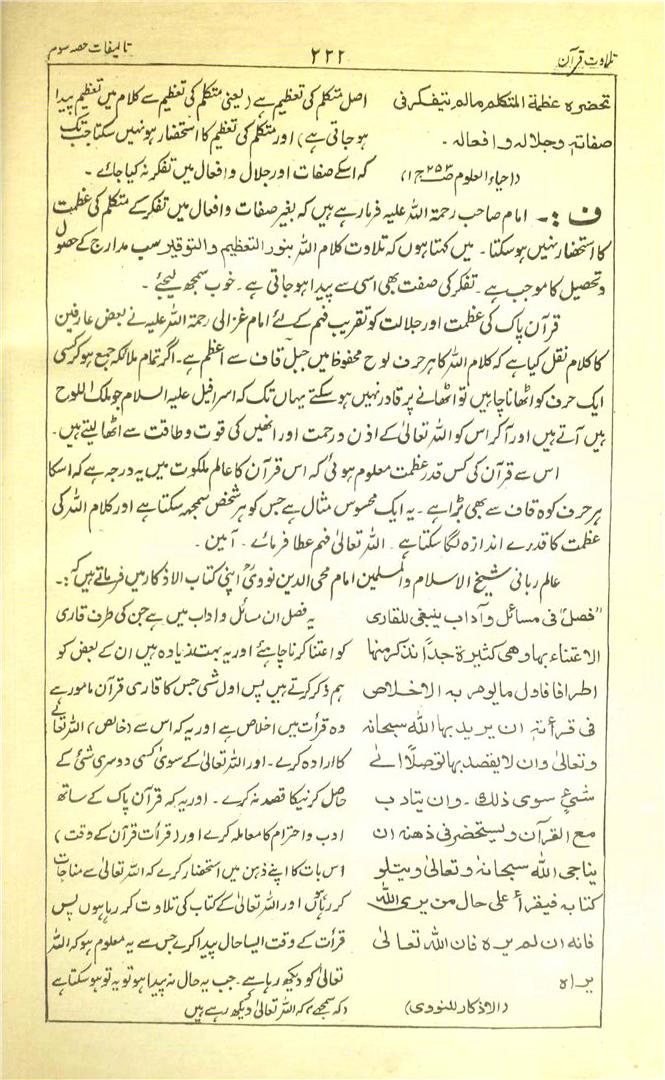 تلاوت قرآن
۲۲۲
تالیفات حصہ سوم
تحضرہ عظمۃ المتکلم مالم یتفکر فی
صفاتہٖ وجلالہ وافعالہ۔
(احیاء العلوم ص۲۵۳ ج۱)
اصل متکلم کی تعظیم ہے (یعنی متکلم کی تعظیم سے کلام میں تعظیم پیدا
ہو جاتی ہے) اور متکلم کی تعظیم کا استحضار ہو نہیں سکتا جب تک
کہ اسکے صفات اور جلال وافعال میں تفکر نہ کیا جائے۔
ف:۔ امام صاحب رحمۃ اللہ علیہ فرما رہے ہیں کہ بغیر صفات وافعال میں تفکر کے متکلم کی عظمت
کا استحضار نہیں ہو سکتا۔ میں کہتا ہوں کہ تلاوت کلام اللہ بنور التعظیم والتوقیر سب مدارج کے حصول
وتحصیل کا موجب ہے۔ تفکر کی صفت بھی اسی سے پیدا ہو جاتی ہے۔ خوب سمجھ لیجئے۔
قرآن پاک کی عظمت اور جلالت کو تقریب فہم کے لئے امام غزالی رحمۃ اللہ علیہ نے بعض عارفین
کا کلام نقل کیا ہے کہ کلام اللہ کا ہر حرف لوح محفوظ میں جبل قاف سے اعظم ہے۔ اگر تمام ملائکہ جمع ہو کر کسی
ایک حرف کو اٹھانا چاہیں تو اٹھانے پر قادر نہیں ہو سکتے یہاں تک کہ اسرافیل علیہ السلام جو ملک اللوح
ہیں آتے ہیں اور آکر اس کو اللہ تعالیٰ کے اذن ورحمت اور انھیں کی قوت وطاقت سے اٹھا لیتے ہیں۔
اس سے قرآن کی کس قدر عظمت معلوم ہوئی کہ اس قرآن کا عالم ملکوت میں یہ درجہ ہے کہ اسکا
ہر حرف کوہ قاف سے بھی بڑا ہے۔ یہ ایک محسوس مثال ہے جس کو ہر شخص سمجھ سکتا ہے اور کلام اللہ کی
عظمت کا قدرے اندازہ لگا سکتا ہے۔ اللہ تعالیٰ فہم عطا فرمائے۔ آمین۔
عالم ربانی شیخ الاسلام والمسلمین امام محی الدین نووی اپنی کتاب الاذکار میں فرماتے ہیں کہ:۔
"فصل" فی مسائل وآداب ینبغی للقاری
الاعتناء بھا وھی کثیرۃ جداً نذکر منھا
اطرافا فاول مایؤمر بہ الاخلاص
فی قرأتہ ان یرید بھا اللہ سبحانہ
وتعالیٰ وان لا یقصد بھا توصلاً الیٰ
شئیءٍ سوی ذلک۔ وان یتادب
مع القرآن ویستحضر فی ذھنہ ان
یناجی اللہ سبحانہٗ وتعالیٰ ویتلو
کتابہ فیقرأ علی حال من یری اللہ
فانہ ان لم یرہ فان اللہ تعالیٰ
یراہ
(الاذکار للنووی)
یہ فصل ان مسائل وآداب میں ہے جن کی طرف قاری
کو اعتنا کرنا چاہئے اور یہ بہت زیادہ ہیں ان کے بعض کو
ہم ذکر کرتے ہیں پس اول شئی جس کا قاری قرآن مامور ہے
وہ قرأت میں اخلاص ہے اور یہ کہ اس سے (خالص) اللہ تعالیٰ
کا ارادہ کرے۔ اور اللہ تعالیٰ کے سویٰ کسی دوسری شئ کے
حاصل کرنیکا قصد نہ کرے۔ اور یہ کہ قرآن پاک کے ساتھ
ادب واحترام کا معاملہ کرے اور (قرأت قرآن کے وقت)
اس بات کا اپنے ذہن میں استحضار کرے کہ اللہ تعالیٰ سے مناجات
کر رہا ہوں اور اللہ تعالیٰ کے کتاب کی تلاوت کر رہا ہوں پس
قرأت کے وقت ایسا حال پیدا کرے جس سے یہ معلوم ہو کہ اللہ
تعالیٰ کو دیکھ رہا ہے۔ جب یہ حال نہ پیدا ہو تو یہ تو ہو سکتا ہے
(کہ سمجھے کہ اللہ تعالیٰ دیکھ رہے ہیں